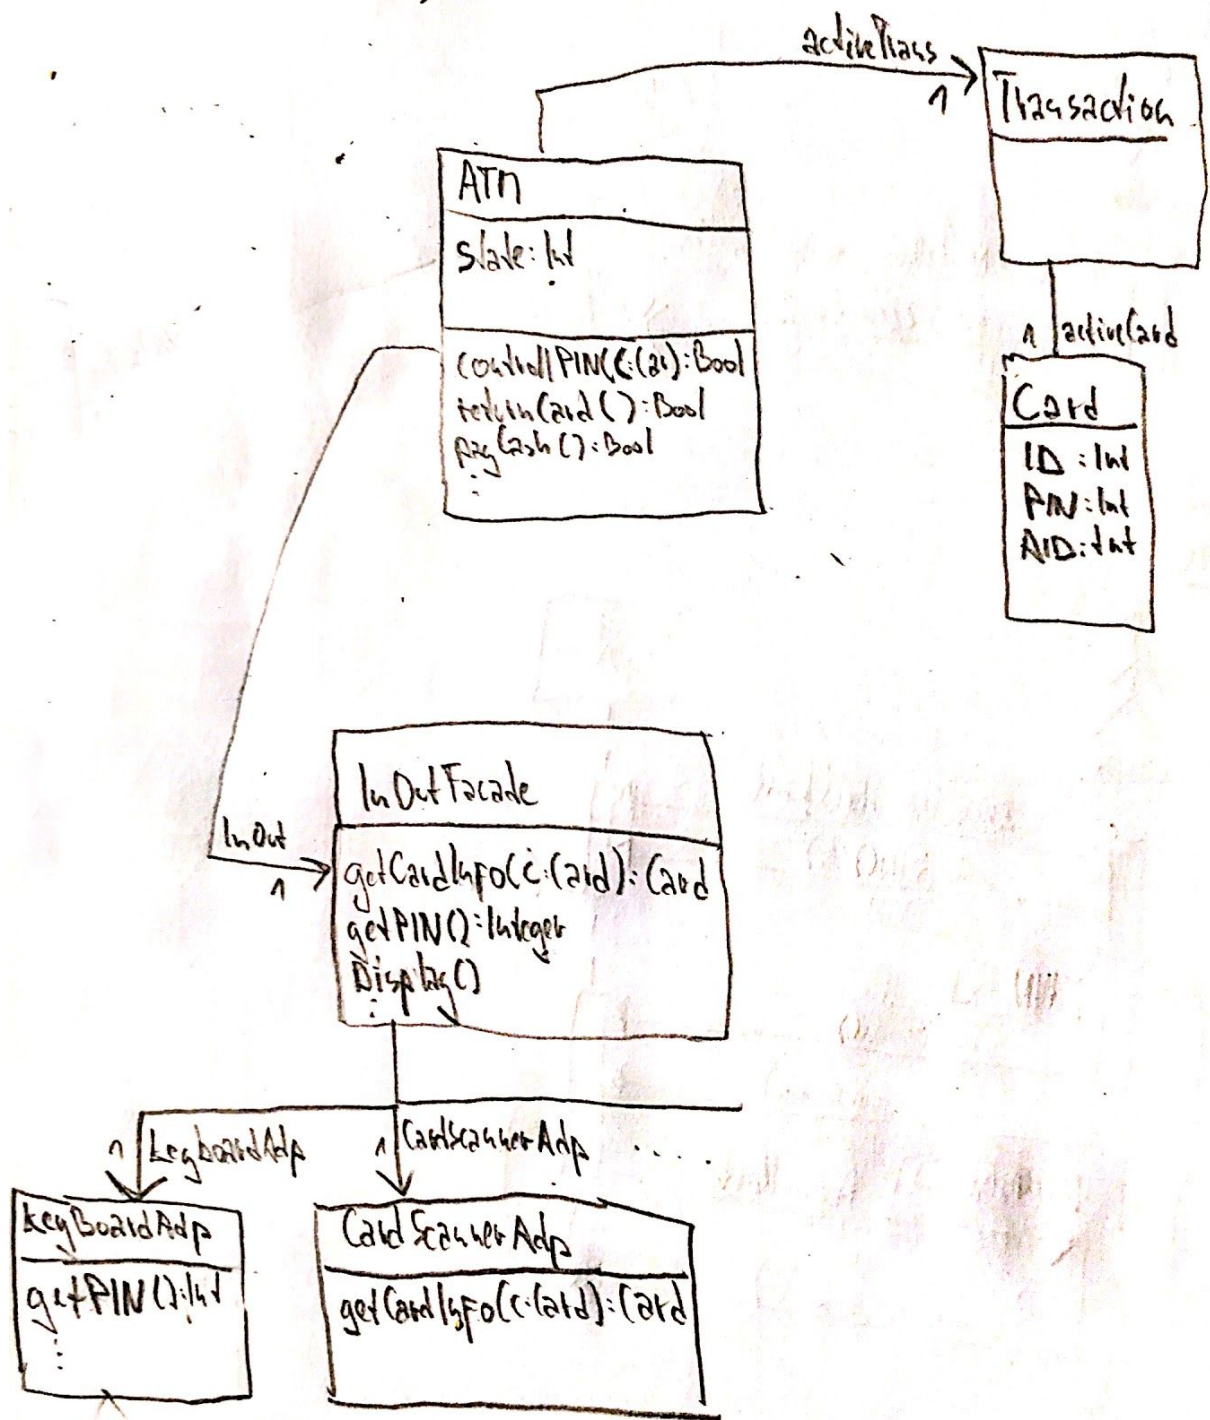 activeTrans
1
Transaction
ATM
State: Int
controllPIN(C:Car): Bool
returnCard(): Bool
payCash(): Bool
:
1 activeCard
Card
ID: Int
PIN: Int
AID: Int
InOutFacade
InOut
1
getCardInfo(c:Card): Card
getPIN(): Integer
Display()
:
1 KeyboardAdp
1 CardScannerAdp .....
KeyBoardAdp
getPIN(): Int
:
CardScannerAdp
getCardInfo(c:Card): Card